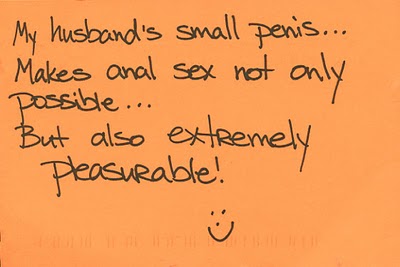 My husband's small penis...
Makes anal sex not only
possible...
But also extremely
pleasurable!